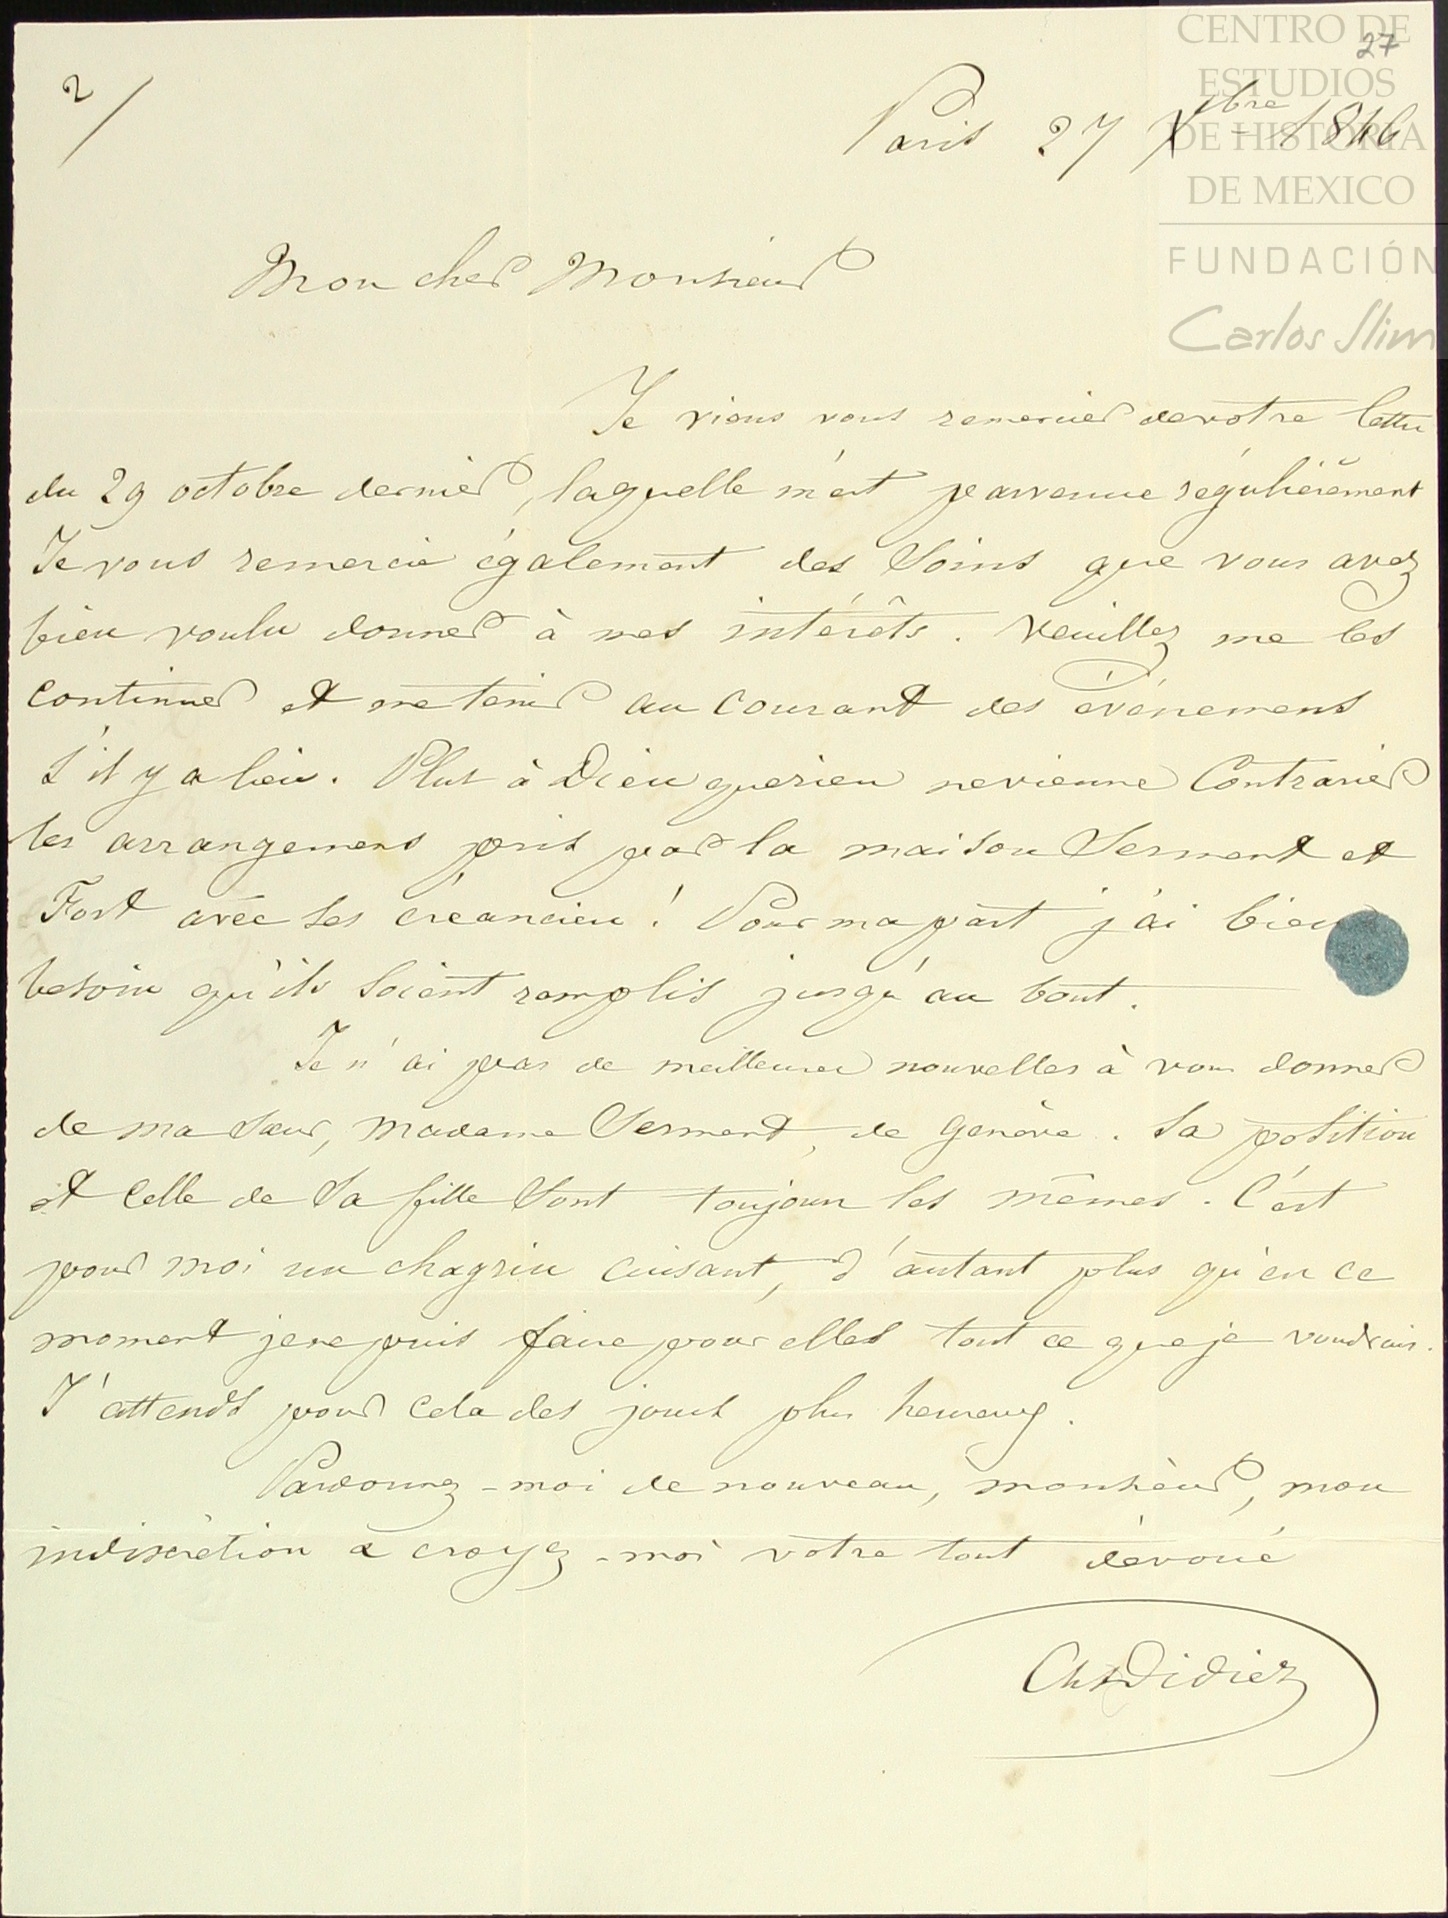 CENTRO DE
ESTUDIOS
DE HISTORIA
DE MEXICO
FUNDACIÓN
Carlos Slim
27
2/
Paris 27 Xbre 1846
Mon cher Monsieur
Je viens vous remercier de votre lettre
du 29 octobre dernier, laquelle m'est parvenue régulièrement
Je vous remercie également des soins que vous avez
bien voulu donner à mes intérêts. Veuillez me les
continuer et me tenir au courant des événemens
s'il y a lieu. Plut à Dieu que rien ne vienne contrarier
les arrangemens pris par la maison Serment et
Fort avec ses créanciers! Pour ma part j'ai bien
besoin qu'ils soient remplis jusqu'au bout.
Je n'ai pas de meilleures nouvelles à vous donner
de ma sœur, Madame Serment, de Genève. Sa position
et celle de sa fille sont toujours les mêmes. C'est
pour moi un chagrin cuisant, d'autant plus qu'en ce
moment je ne puis faire pour elles tout ce que je voudrais.
J'attends pour cela des jours plus heureux.
Pardonnez-moi de nouveau, monsieur, mon
indiscrétion & croyez-moi votre tout dévoué
Chs Didier